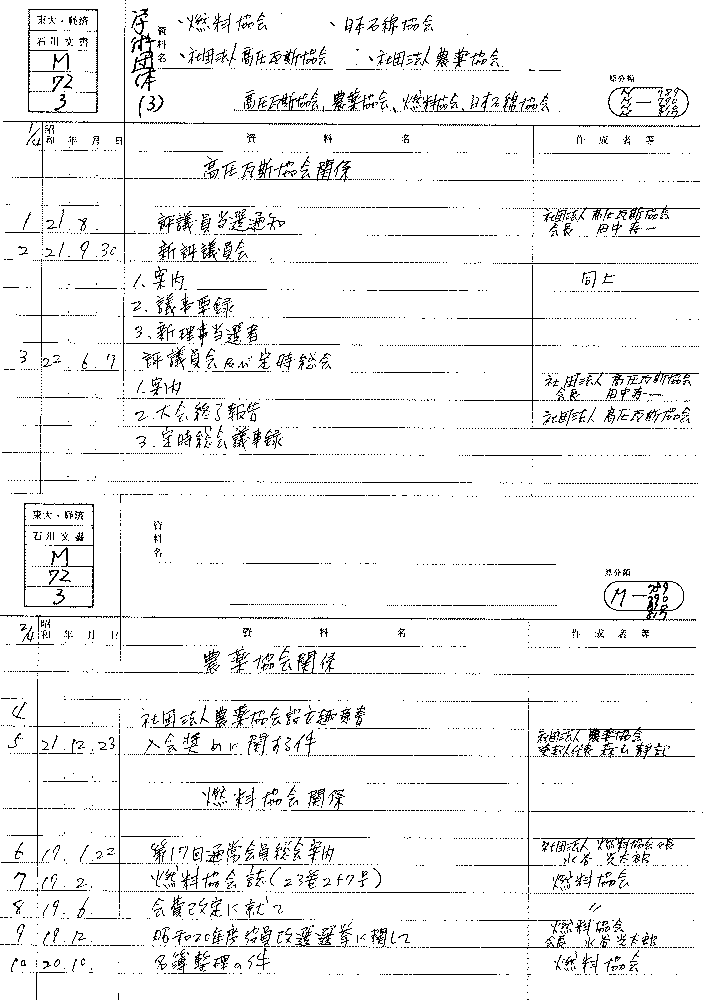 東大・経済
石川文書
M
72
3
学術団体
(3)
資料名
、燃料協会 、日本石綿協会
、社団法人高圧瓦斯協会 、社団法人農薬協会
高圧瓦斯協会、農薬協会、燃料協会、日本石綿協会
原分類
1/4 昭和 年 月 日 資料名 作成者等
高圧瓦斯協会関係
1 21. 8. 評議員当選通知 社団法人 高圧瓦斯協会
会長 田中
2 21. 9. 30 新評議員会
1. 案内 同上
2. 議事要録
3. 新理事当選者
3 22. 6. 7 評議員会及び定時総会
1. 案内 社団法人 高圧瓦斯協会
会長 田中
2. 大会終了報告 社団法人 高圧瓦斯協会
3. 定時総会議事録
東大・経済
石川文書
M
72
3
資料名
原分類
M—
2/4 昭和 年 月 日 資料名 作成者等
農薬協会関係
4 社団法人農薬協会設立趣意書
5 21. 12. 23 入会奨めに関する件 社団法人 農薬協会
燃料協会関係
6 19. 1. 22 第17回通常会員総会案内 社団法人 燃料協会会長
水谷光太郎
7 19. 2. 燃料協会誌(23巻257号) 燃料協会
8 19. 6 会費改定に就て 〃
9 19. 12 昭和20年度役員改選選挙に関して 燃料協会
会長 水谷光太郎
10 20. 10. 名簿整理の件 燃料協会